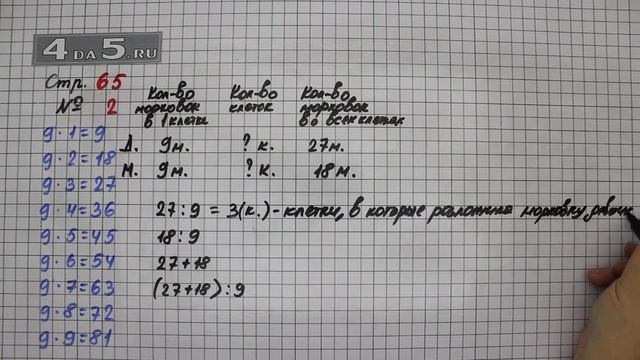 4DA5.RU
Стр. 65
№ 2
Кол-во морковок в 1 клетке
Кол-во клеток
Кол-во морковок во всех клетках
Д. 9м. ? к. 27м.
М. 9м. ? к. 18м.
9·1=9
9·2=18
9·3=27
9·4=36
9·5=45
9·6=54
9·7=63
9·8=72
9·9=81
27:9 = 3(к.) - клетки, в которые разложила морковку
18:9
27+18
(27+18):9